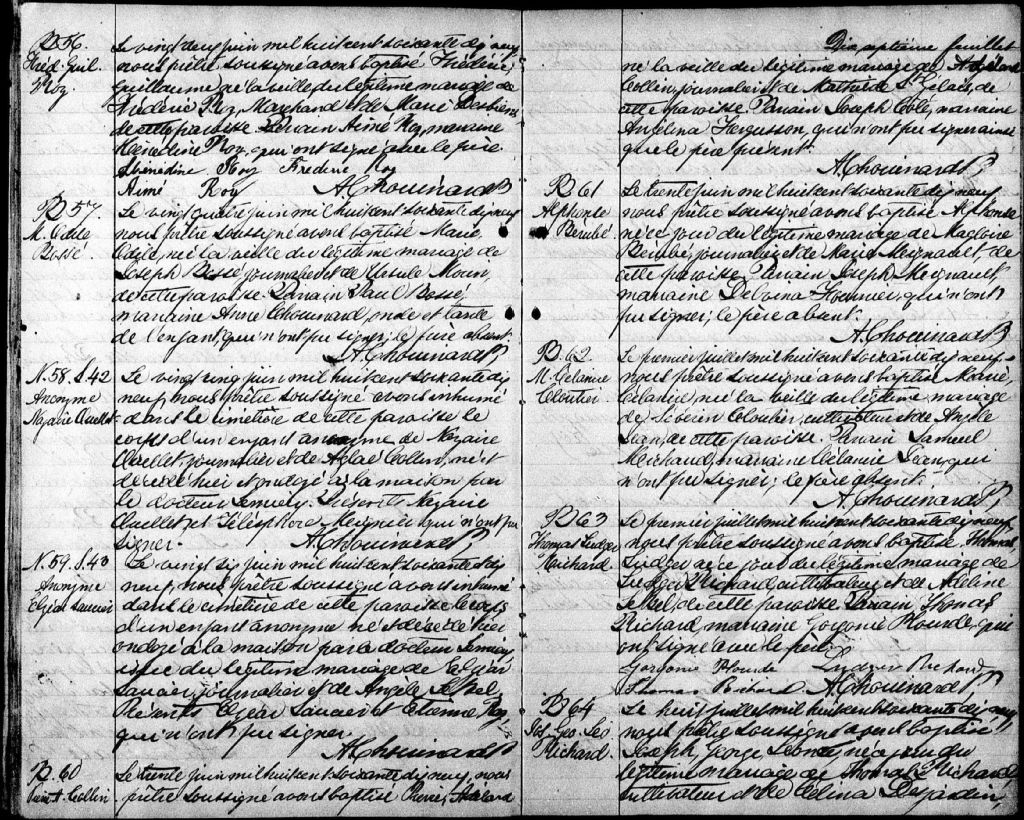 B 56.
Fréd. Guil.
Roy
Le vingt deux juin mil huit cent soixante dix neuf
nous prêtre soussigné avons baptisé Frédéric,
Guillaume né la veille du légitime mariage de
Frédéric Roy, Marchand et de Marie
de cette paroisse. Parrain Aimé Roy, marraine
Roy, qui ont signé avec le père
Roy Frédéric Roy
Aimé Roy A. Chouinard Ptr
B 57.
M. Odile
Bossé
Le vingt quatre juin mil huit cent soixante dix neuf
nous prêtre soussigné avons baptisé Marie
Odile, née la veille du légitime mariage de
Joseph Bossé journalier et de Ursule Morin,
de cette paroisse. Parrain Paul Bossé,
marraine Anne Chouinard, oncle et tante
de l'enfant, qui n'ont pu signer; le père absent.
A. Chouinard Ptr
N. 58. S. 42
Anonyme
Nazaire Ouellet
Le vingt cinq juin mil huit cent soixante dix
neuf, nous prêtre soussigné avons inhumé
dans le cimetière de cette paroisse le
corps d'un enfant anonyme de Nazaire
Ouellet, journalier et de Aglaé Collin, né et
décédé hier et ondoyé à la maison par
le docteur. Présents Nazaire
Ouellet et Télesphore qui n'ont pu
signer. A. Chouinard Ptr
N. 59. S. 43
Anonyme
Elzéar Saucier
Le vingt six juin mil huit cent soixante dix
neuf, nous prêtre soussigné avons inhumé
dans le cimetière de cette paroisse le corps
d'un enfant anonyme né et décédé hier
ondoyé à la maison par le docteur
issu du légitime mariage de Elzéar
Saucier, journalier et de Angèle LeBel,
Présents Elzéar Saucier et Etienne Roy,
qui n'ont pu signer.
A. Chouinard Ptr
B. 60
Collin
Le trente juin mil huit cent soixante dix neuf, nous
prêtre soussigné avons baptisé Pierre,
Dix septième feuillet
né la veille du légitime mariage de
Collin, journalier et de Mathilde St Gelais, de
cette paroisse. Parrain Joseph Coté, marraine
Angelina Fergusson, qui n'ont pu signer ainsi
que le père présent.
A. Chouinard Ptr
B 61
Alphonse
Bérubé
Le trente juin mil huit cent soixante dix neuf
nous prêtre soussigné avons baptisé Alphonse
né ce jour du légitime mariage de Magloire
Bérubé, journalier et de Marie Meignault, de
cette paroisse. Parrain Joseph Meignault,
marraine Delvina Fournier, qui n'ont
pu signer; le père absent.
A. Chouinard Ptr
B 62.
M. Célanie
Cloutier
Le premier juillet mil huit cent soixante dix neuf
nous prêtre soussigné avons baptisé Marie,
Célanie, née la veille du légitime mariage
de Séverin Cloutier, cultivateur et de Angèle
Jean, de cette paroisse. Parrain Samuel
Michaud, marraine Célanie Jean, qui
n'ont pu signer; le père absent.
A. Chouinard Ptr
B 63
Thomas Ludger
Richard
Le premier juillet mil huit cent soixante dix neuf
nous prêtre soussigné avons baptisé Thomas,
Ludger né ce jour du légitime mariage de
Ludger Richard, cultivateur et de Adeline
LeBel, de cette paroisse. Parrain, Thomas
Richard, marraine Gorgonie Plourde, qui
ont signé avec le père.
Gorgonie Plourde Ludger Richard
Thomas Richard A. Chouinard Ptr
B 64
Jos. Geo. Léo
Michaud
Le huit juillet mil huit cent soixante dix neuf
nous prêtre soussigné avons baptisé
Joseph, George né ce jour du
légitime mariage de Thomas Michaud
cultivateur et de Célina Desjardins,